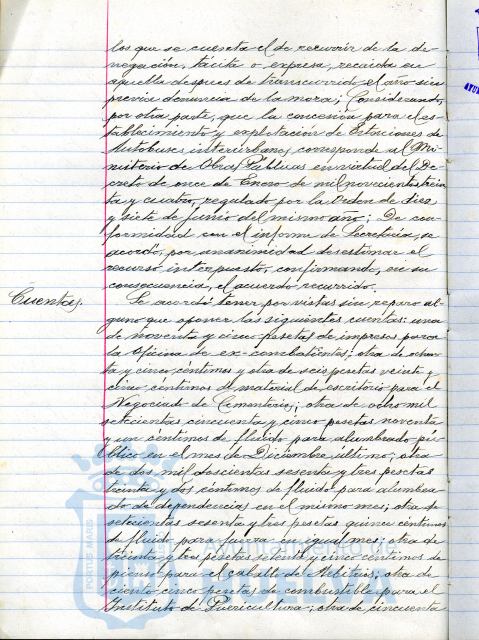 los que se cuenta el de recurrir de la de-
negación, tácita o expresa, recaida en
aquella despues de transcurrido el año sin
previa denuncia de la mora; Considerando,
por otra parte, que la concesión para el es-
tablecimiento y explotación de Estaciones de
Autobuses interurbanos corresponde al Mi-
nisterio de Obras Públicas en virtud del De-
creto de once de Enero de mil novecientos trein
ta y cuatro, regulado por la Orden de diez
y siete de junio del mismo año; De con-
formidad con el informe de Secretaría, se
acordó, por unanimidad desestimar el
recurso interpuesto, confirmando, en su
consecuencia, el acuerdo recurrido.
Cuentas.
Se acordó tener por vistas sin reparo al-
guno que oponer las siguientes cuentas: una
de noventa y cinco pesetas de impresos para
la Oficina de ex-combatientes; otra de ochen
ta y cinco céntimos y otra de seis pesetas veinte y
cinco céntimos de material de escritorio para el
Negociado de Cementerios; otra de ocho mil
setecientas cincuenta y cinco pesetas noventa
y un céntimos de fluido para alumbrado pú-
blico en el mes de Diciembre último; otra
de dos mil doscientas sesenta y tres pesetas
treinta y dos céntimos de fluido para alumbra
do de dependencias en el mismo mes; otra de
setecientas sesenta y tres pesetas quince céntimos
de fluido para fuerza en igual mes; otra de
treinta y tres pesetas setenta y cinco céntimos de
pienso para el caballo de Arbitrios; otra de
ciento cinco pesetas de combustible para el
Instituto de Puericultura; otra de cincuenta
PORTUS MARIS